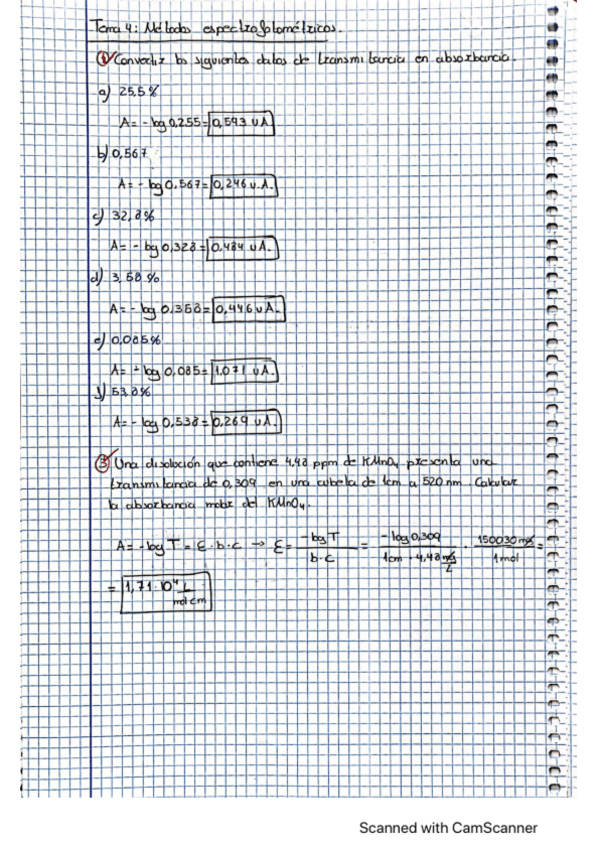 Tema 4: Métodos espectrofotométricos.
① Convertir los siguientes datos de transmitancia en absorbancia.
a) 25,5%
A = - log 0,255 = 0,593 u.A
b) 0,567
A = - log 0,567 = 0,246 u.A.
c) 32,8%
A = - log 0,328 = 0,484 u.A.
d) 3,58 %
A = - log 0,358 = 0,446 u.A.
e) 0,085%
A = - log 0,085 = 1,071 u.A.
f) 53,8%
A = - log 0,538 = 0,269 u.A.
③ Una disolución que contiene 4,48 ppm de KMnO₄ presenta una
transmitancia de 0,309 en una cubeta de 1cm a 520 nm. Calcular
la absorbancia molar del KMnO₄.
A = - log T = ε · b · c → ε = -log T / b · c = -log 0,309 / 1cm · 4,48 mg/L · 158030 mg / 1 mol =
= 1,71 · 10⁴ L / mol cm
Scanned with CamScanner